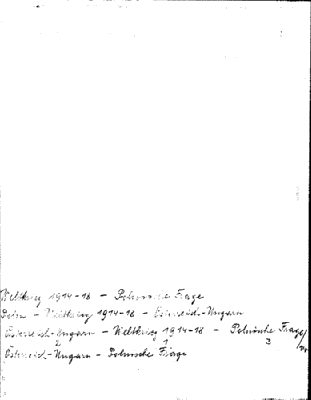 Weltkrieg 1914-18 - Polnische Frage
Polen - Weltkrieg 1914-18 - Österreich-Ungarn
Österreich-Ungarn - Weltkrieg 1914-18 - Polnische Frage/
2 1 3
Österreich-Ungarn - Polnische Frage